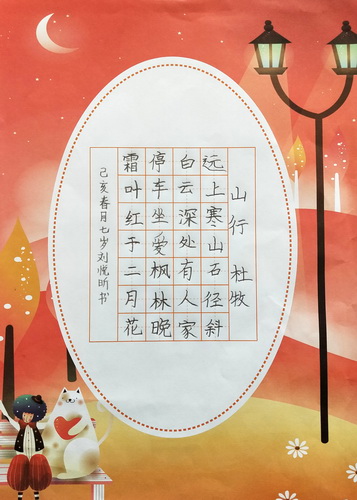 山行 杜牧
远上寒山石径斜
白云深处有人家
停车坐爱枫林晚
霜叶红于二月花
己亥春月七岁刘悦昕书